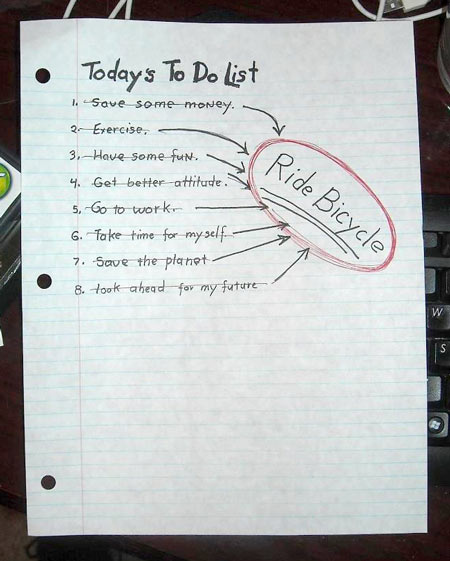 Today's To Do List
1. Save some money.
2. Exercise.
3. Have some fun.
4. Get better attitude.
5. Go to work.
6. Take time for myself
7. Save the planet
8. look ahead for my future
Ride Bicycle
W
S